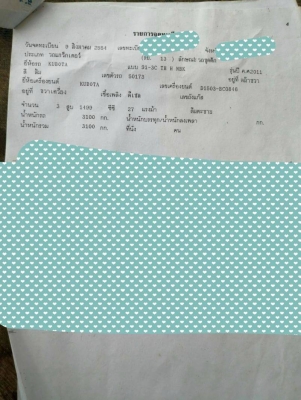 รายการจดทะเบียน
วันจดทะเบียน 9 สิงหาคม 2554 เลขทะเบียน
ประเภท รถแทรกเตอร์ (รย. 13 ) ลักษณะ รถขุดตัก
ยี่ห้อรถ KUBOTA แบบ รุ่นปี ค.ศ.2011
สี ส้ม เลขตัวรถ 50173 อยู่ที่
ยี่ห้อเครื่องยนต์ KUBOTA เลขเครื่องยนต์
อยู่ที่ ขวาเครื่อง เชื้อเพลิง ดีเซล เลขถังแก๊ส
จำนวน 3 สูบ 1499 ซีซี 27 แรงม้า
น้ำหนักรถ 3100 กก. น้ำหนักบรรทุก/น้ำหนักลงเพลา กก.
น้ำหนักรวม 3100 กก. ที่นั่ง คน